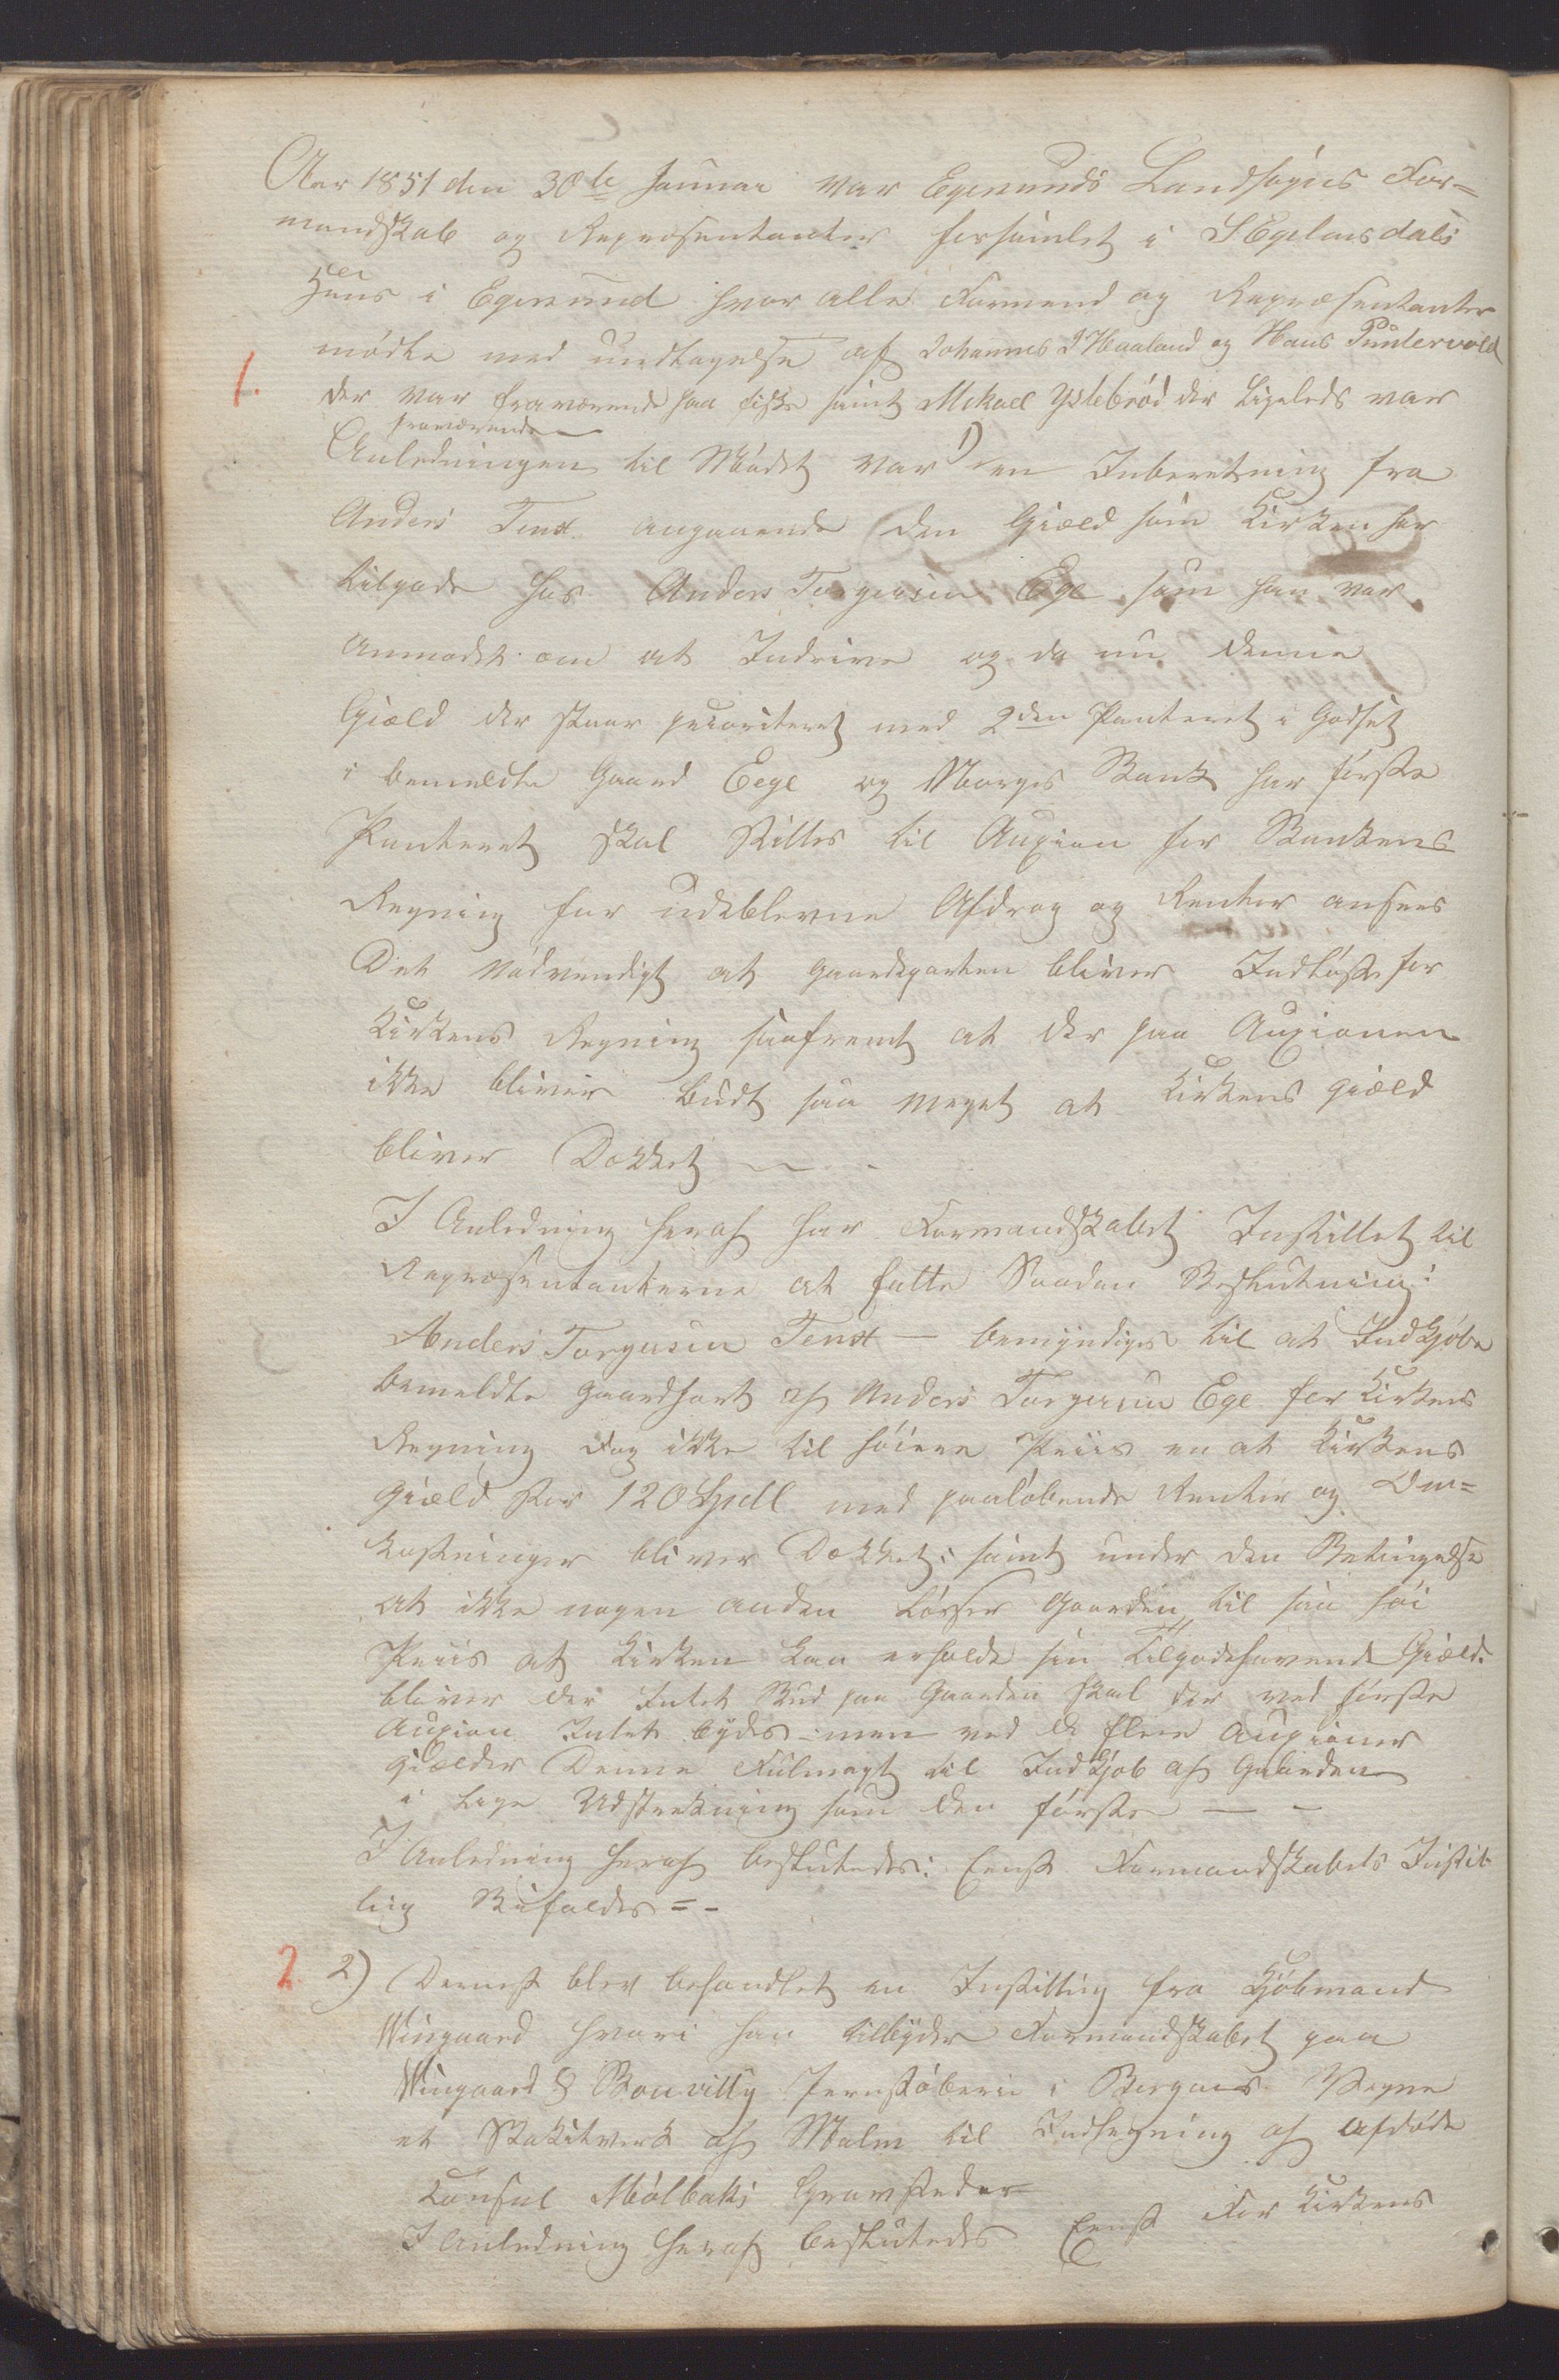 Aar 1851 den 30te Januar var Egersunds Landsogns For=
mandskab og Repræsentanter forsamlet i S. Egelandsdals
Huus i Egersund hvor alle Formænd og Repræsentanter
mødte med undtagelse af Johannes J Haaland og Hans Puntervold
1. der var fraværende paa fiske samt Mikael Ystebrød der Ligeleds var
fraværende
Anledningen til Mødet var 1) en Inberetning fra
Anders Tengs angaaende den Giæld som Kirken har
tilgode hos Anders Torgersen Ege som han var
anmodet om at Indrive og da nu denne
Giæld der staar prioriteret med 2den Panteret i Godset
i bemeldte Gaard Eege og Norges Bank har første
Panteret skal stilles til Auxion for Bankens
Regning for udeblevne Afdrag og Renter ansees
Det nødvendigt at gaardsparten bliver Indløst for
Kirkens Regning saafremt at der paa Auxionen
ikke bliver Budt saa meget at Kirkens giæld
bliver Dækket
I Anledning heraf har Formandskabet Instillet til
Repræsentanterne at fatte Saadan Beslutning:
Anders Torgersen Tengs — bemyndiges til at Indkjøbe
bemeldte gaardpart af Anders Torgersen Ege for Kirkens
Regning dog ikke til høiere Priis en at Kirkens
Giæld stor 120 Spdl med paaløbende Renter og Om=
kostninger bliver Dækket; samt under den Betingelse
at ikke nogen anden køber Gaarden til saa høi
Priis at Kirken kan erholde sin Tilgodehavende Giæld.
bliver der Intet Bud paa Gaarden skal der ved første
Auxion Intet bydes men ved de flere Auxioner
giælder Denne Fulmagt til Indkjøb af Gaarden
i lige Udstrekning som den første — –
I Anledning heraf besluttedes: Eenst. Formandskabets Instil
ling Bifaldes = -
2. 2) Dernest blev behandlet en Instilling fra Kjøbmand
Wingaard hvori han tilbyder Formandskabet paa
Wingaard & Bouvillys Jernstøberie i Bergens Vegne
et Stakitverk af Malm til Indhegning af afdøde
Konsul Mølbaks Gravsteder
I Anledning heraf besluttedes Eenst For Kirkens